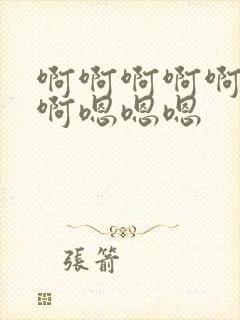 啊啊啊啊啊
啊嗯嗯嗯
張箭